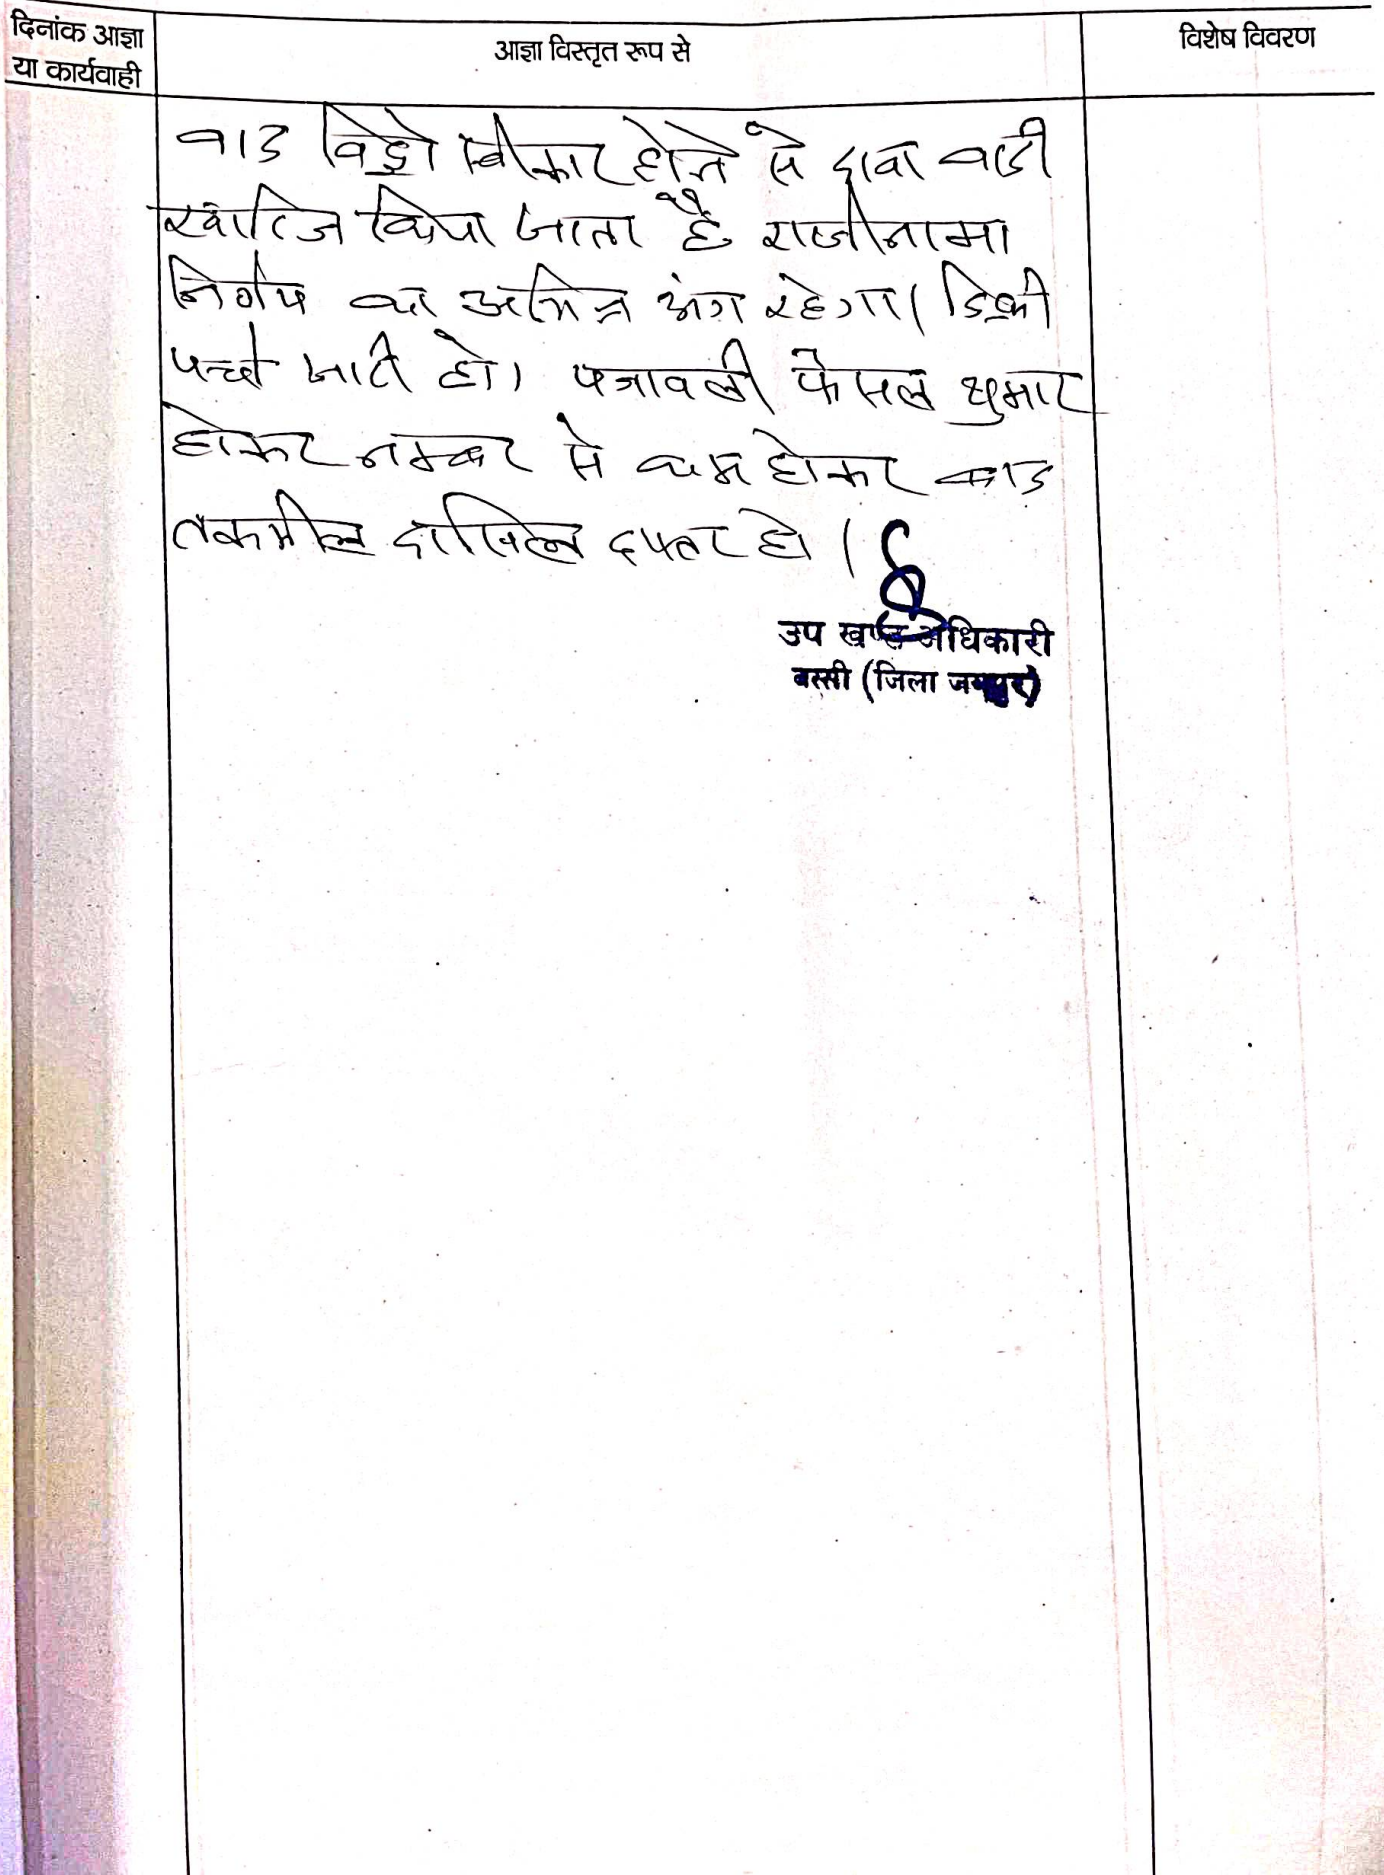 दिनांक आज्ञा
या कार्यवाही
आज्ञा विस्तृत रूप से
विशेष विवरण
वाद विड्रो स्वीकार होने से दावा वादी
खारिज किया जाता है राजीनामा
निर्णय का अभिन्न अंग रहेगा। डिक्री
पर्चा जारी हो। पत्रावली फैसल शुमार
होकर नम्बर से कम होकर बाद
तकमील दाखिल दफ्तर हो।
उप खण्ड अधिकारी
बस्सी (जिला जयपुर)